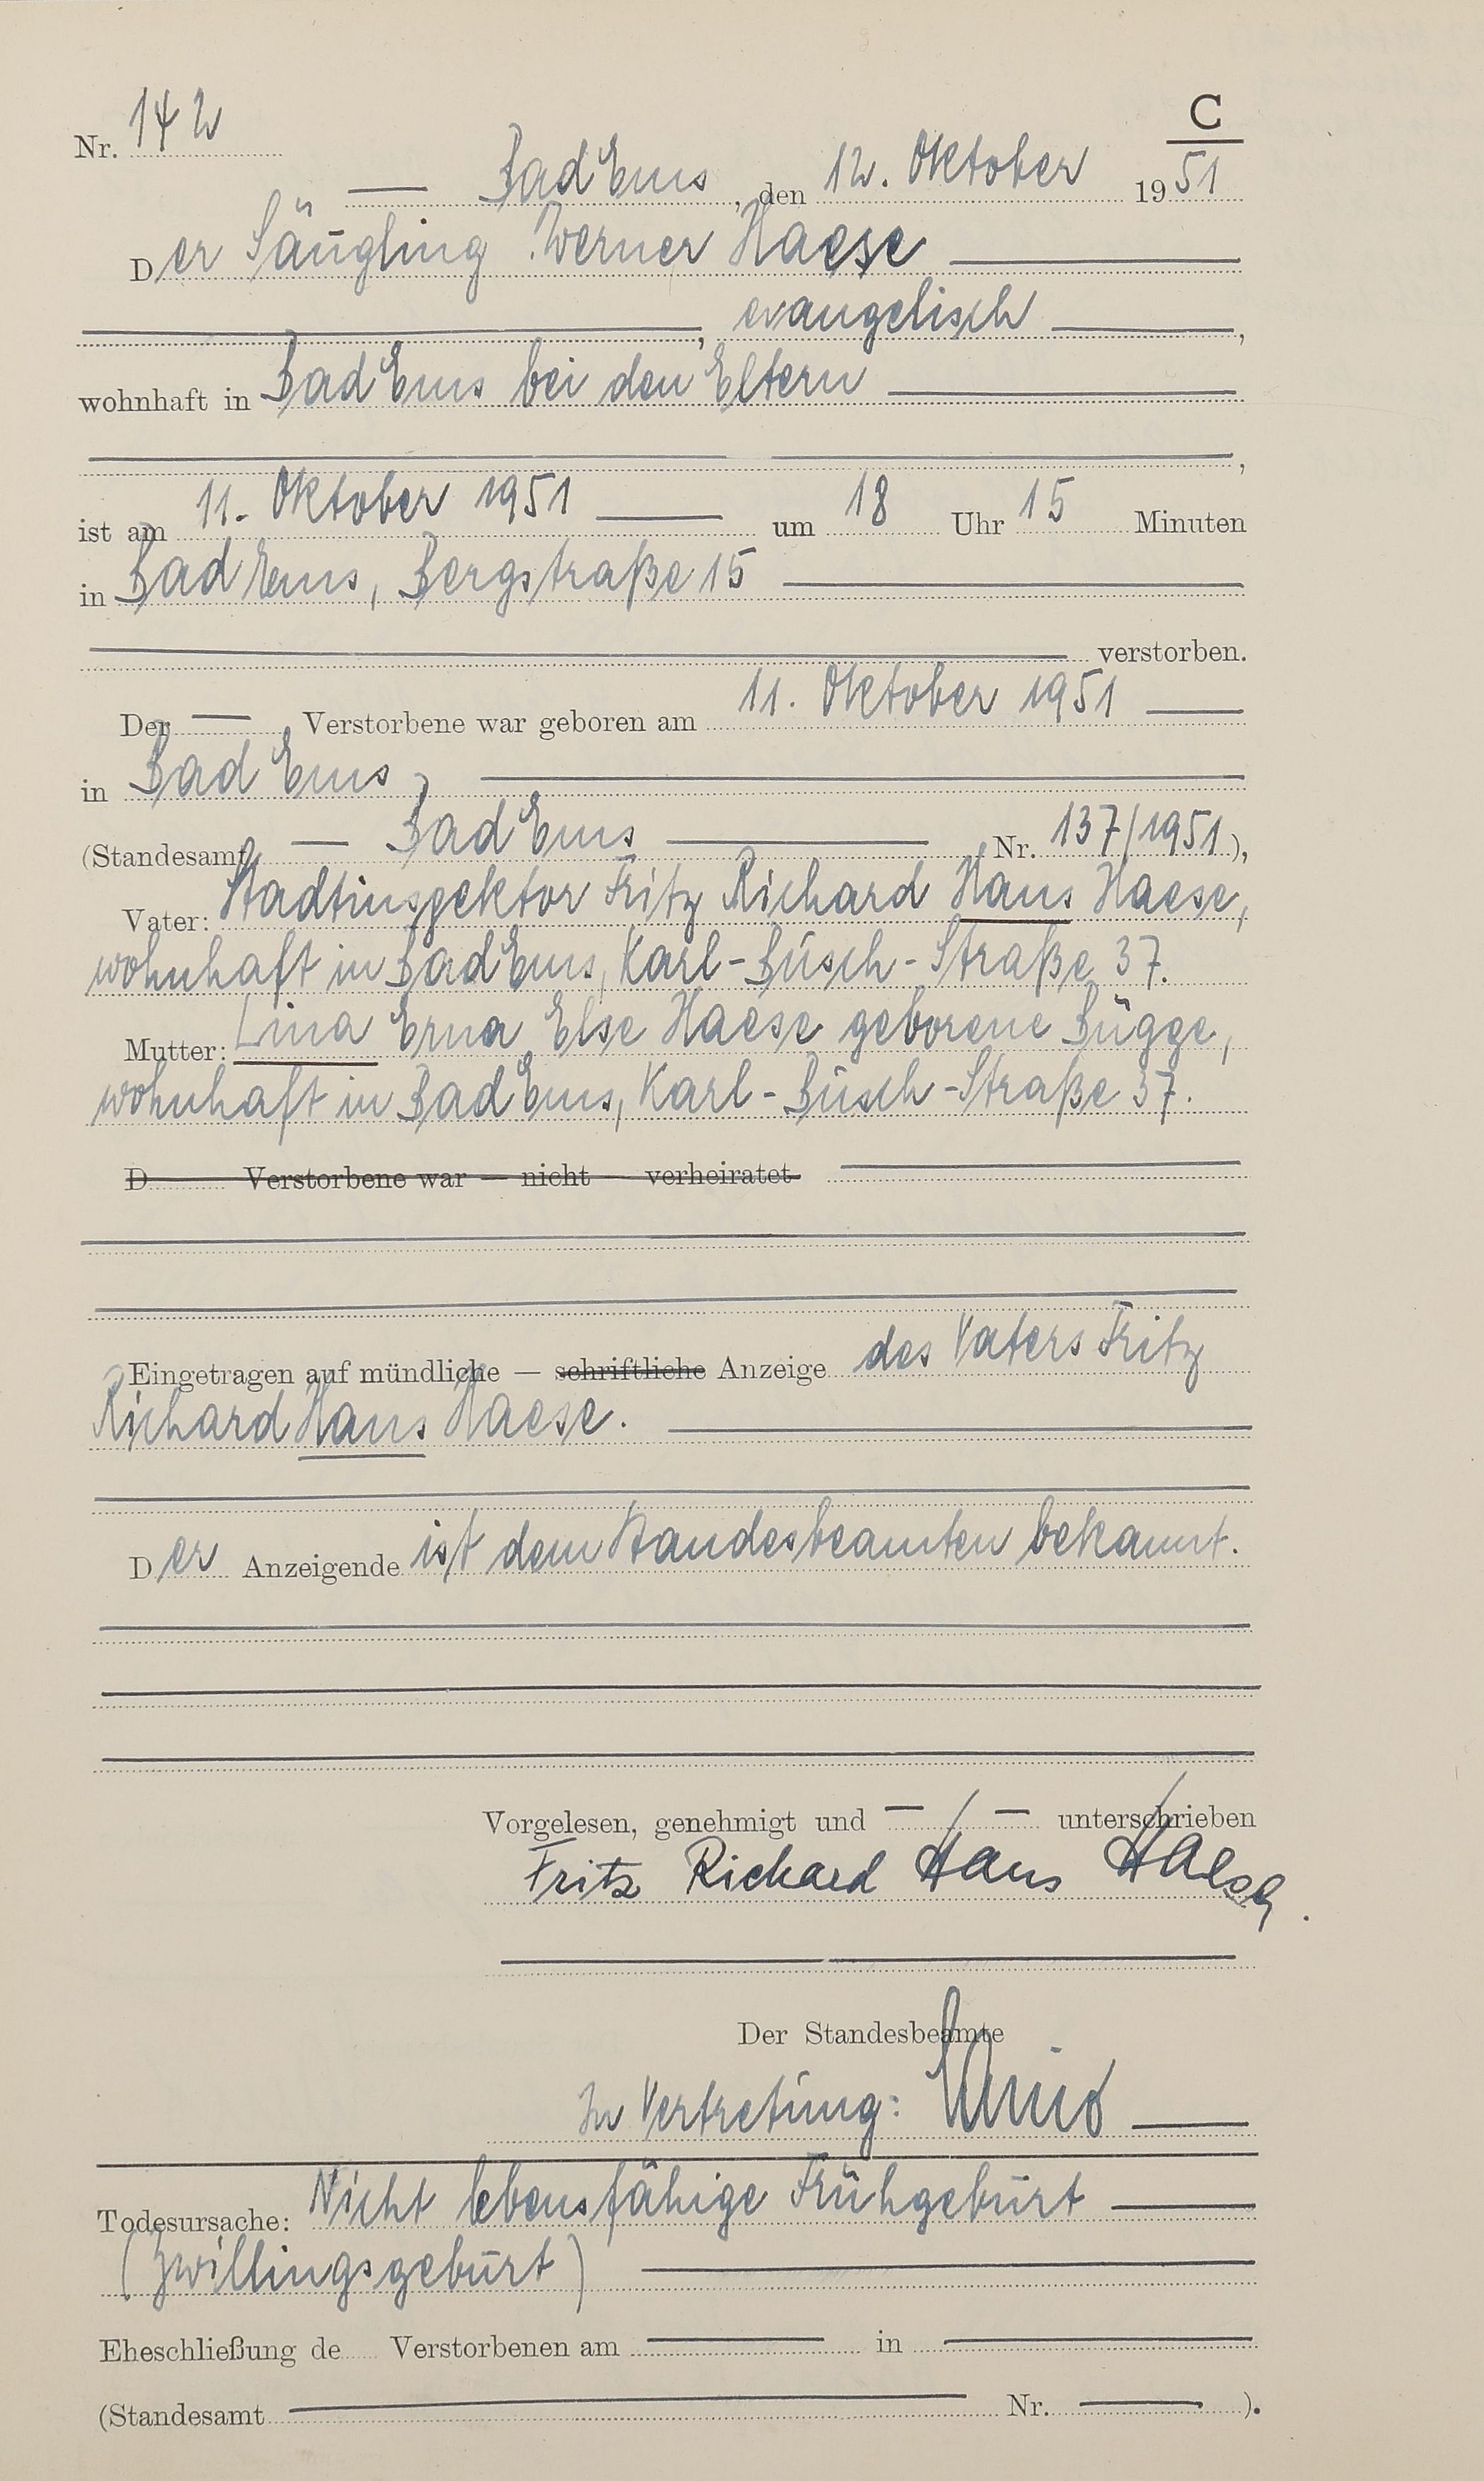 C
Nr. 142
— Bad Ems, den 12. Oktober 1951
Der Säugling Werner Haese —
—, evangelisch —,
wohnhaft in Bad Ems bei den Eltern —
—,
ist am 11. Oktober 1951 — um 18 Uhr 15 Minuten
in Bad Ems, Bergstraße 15 —
— verstorben.
Der — Verstorbene war geboren am 11. Oktober 1951 —
in Bad Ems —
(Standesamt — Bad Ems — Nr. 137/1951),
Vater: Stadtinspektor Fritz Richard Hans Haese,
wohnhaft in Bad Ems, Karl-Busch-Straße 37.
Mutter: Lina Erna Else Haese geborene Bugge,
wohnhaft in Bad Ems, Karl-Busch-Straße 37.
D Verstorbene war — nicht — verheiratet —
Eingetragen auf mündliche — schriftliche Anzeige des Vaters Fritz
Richard Hans Haese. —
Der Anzeigende ist dem Standesbeamten bekannt.
Vorgelesen, genehmigt und — / — unterschrieben
Fritz Richard Hans Haese.
Der Standesbeamte
In Vertretung: —
Todesursache: Nicht lebensfähige Frühgeburt —
(Zwillingsgeburt) —
Eheschließung de Verstorbenen am — in —
(Standesamt — Nr. — ).